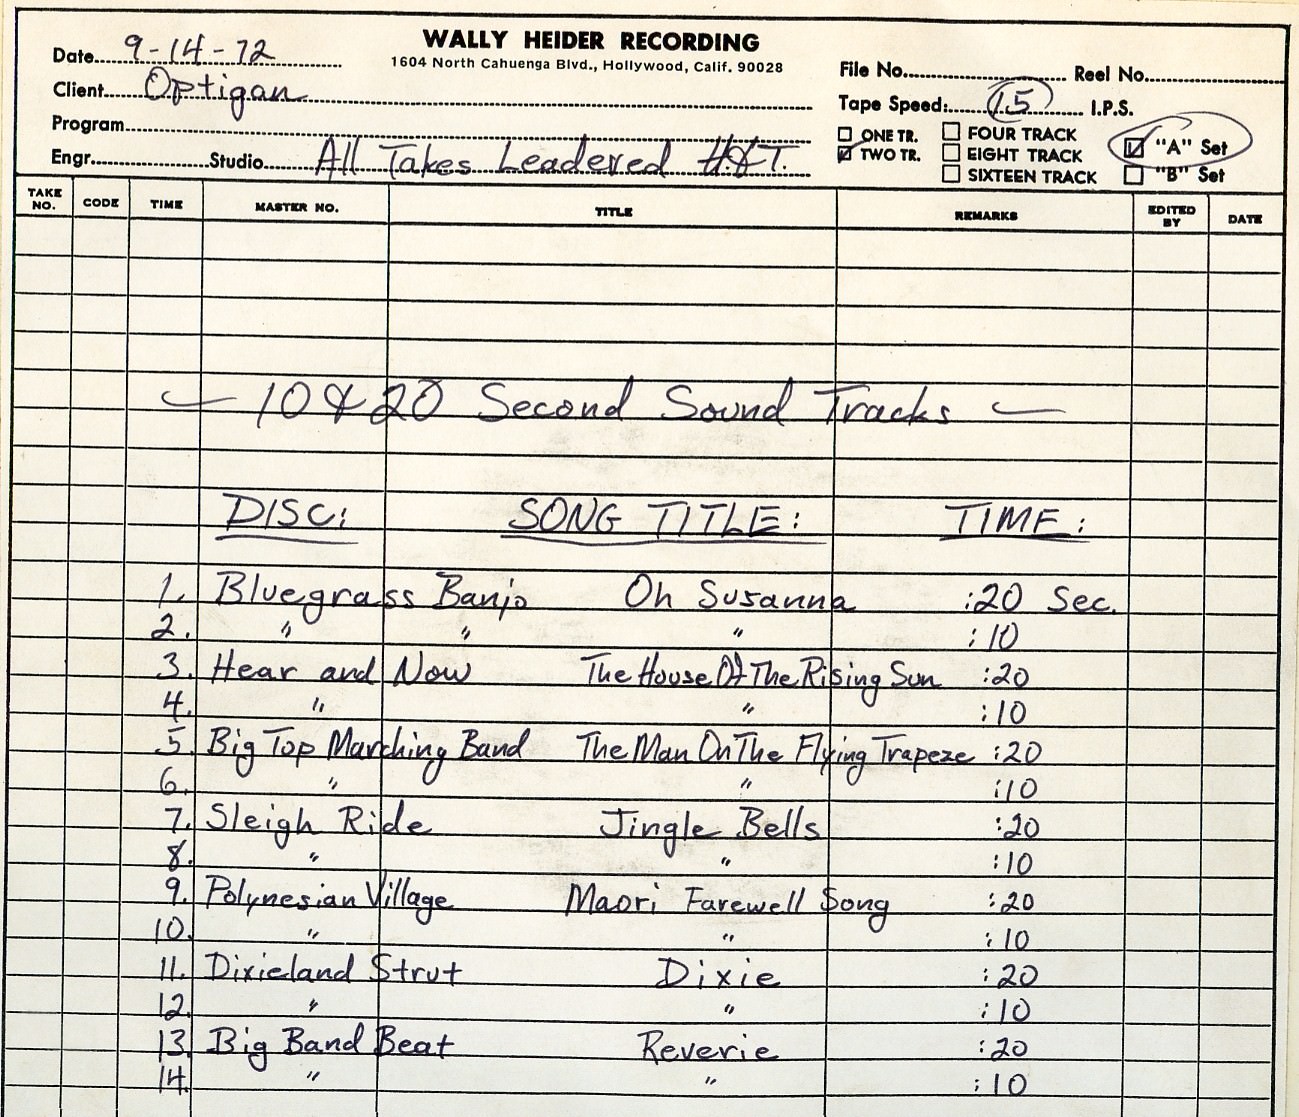 WALLY HEIDER RECORDING
1604 North Cahuenga Blvd., Hollywood, Calif. 90028
Date 9-14-72
Client Optigan
Program
Engr. Studio All Takes Leadered H.&T.
File No. Reel No.
Tape Speed: 15 I.P.S.
ONE TR. FOUR TRACK "A" Set
TWO TR. EIGHT TRACK "B" Set
SIXTEEN TRACK
TAKE NO. CODE TIME MASTER NO. TITLE REMARKS EDITED BY DATE
— 10 & 20 Second Sound Tracks —
DISC: SONG TITLE: TIME:
1. Bluegrass Banjo Oh Susanna :20 Sec.
2. " " " :10
3. Hear and Now The House Of The Rising Sun :20
4. " " :10
5. Big Top Marching Band The Man On The Flying Trapeze :20
6. " " :10
7. Sleigh Ride Jingle Bells :20
8. " " :10
9. Polynesian Village Maori Farewell Song :20
10. " " :10
11. Dixieland Strut Dixie :20
12. " " :10
13. Big Band Beat Reverie :20
14. " " :10